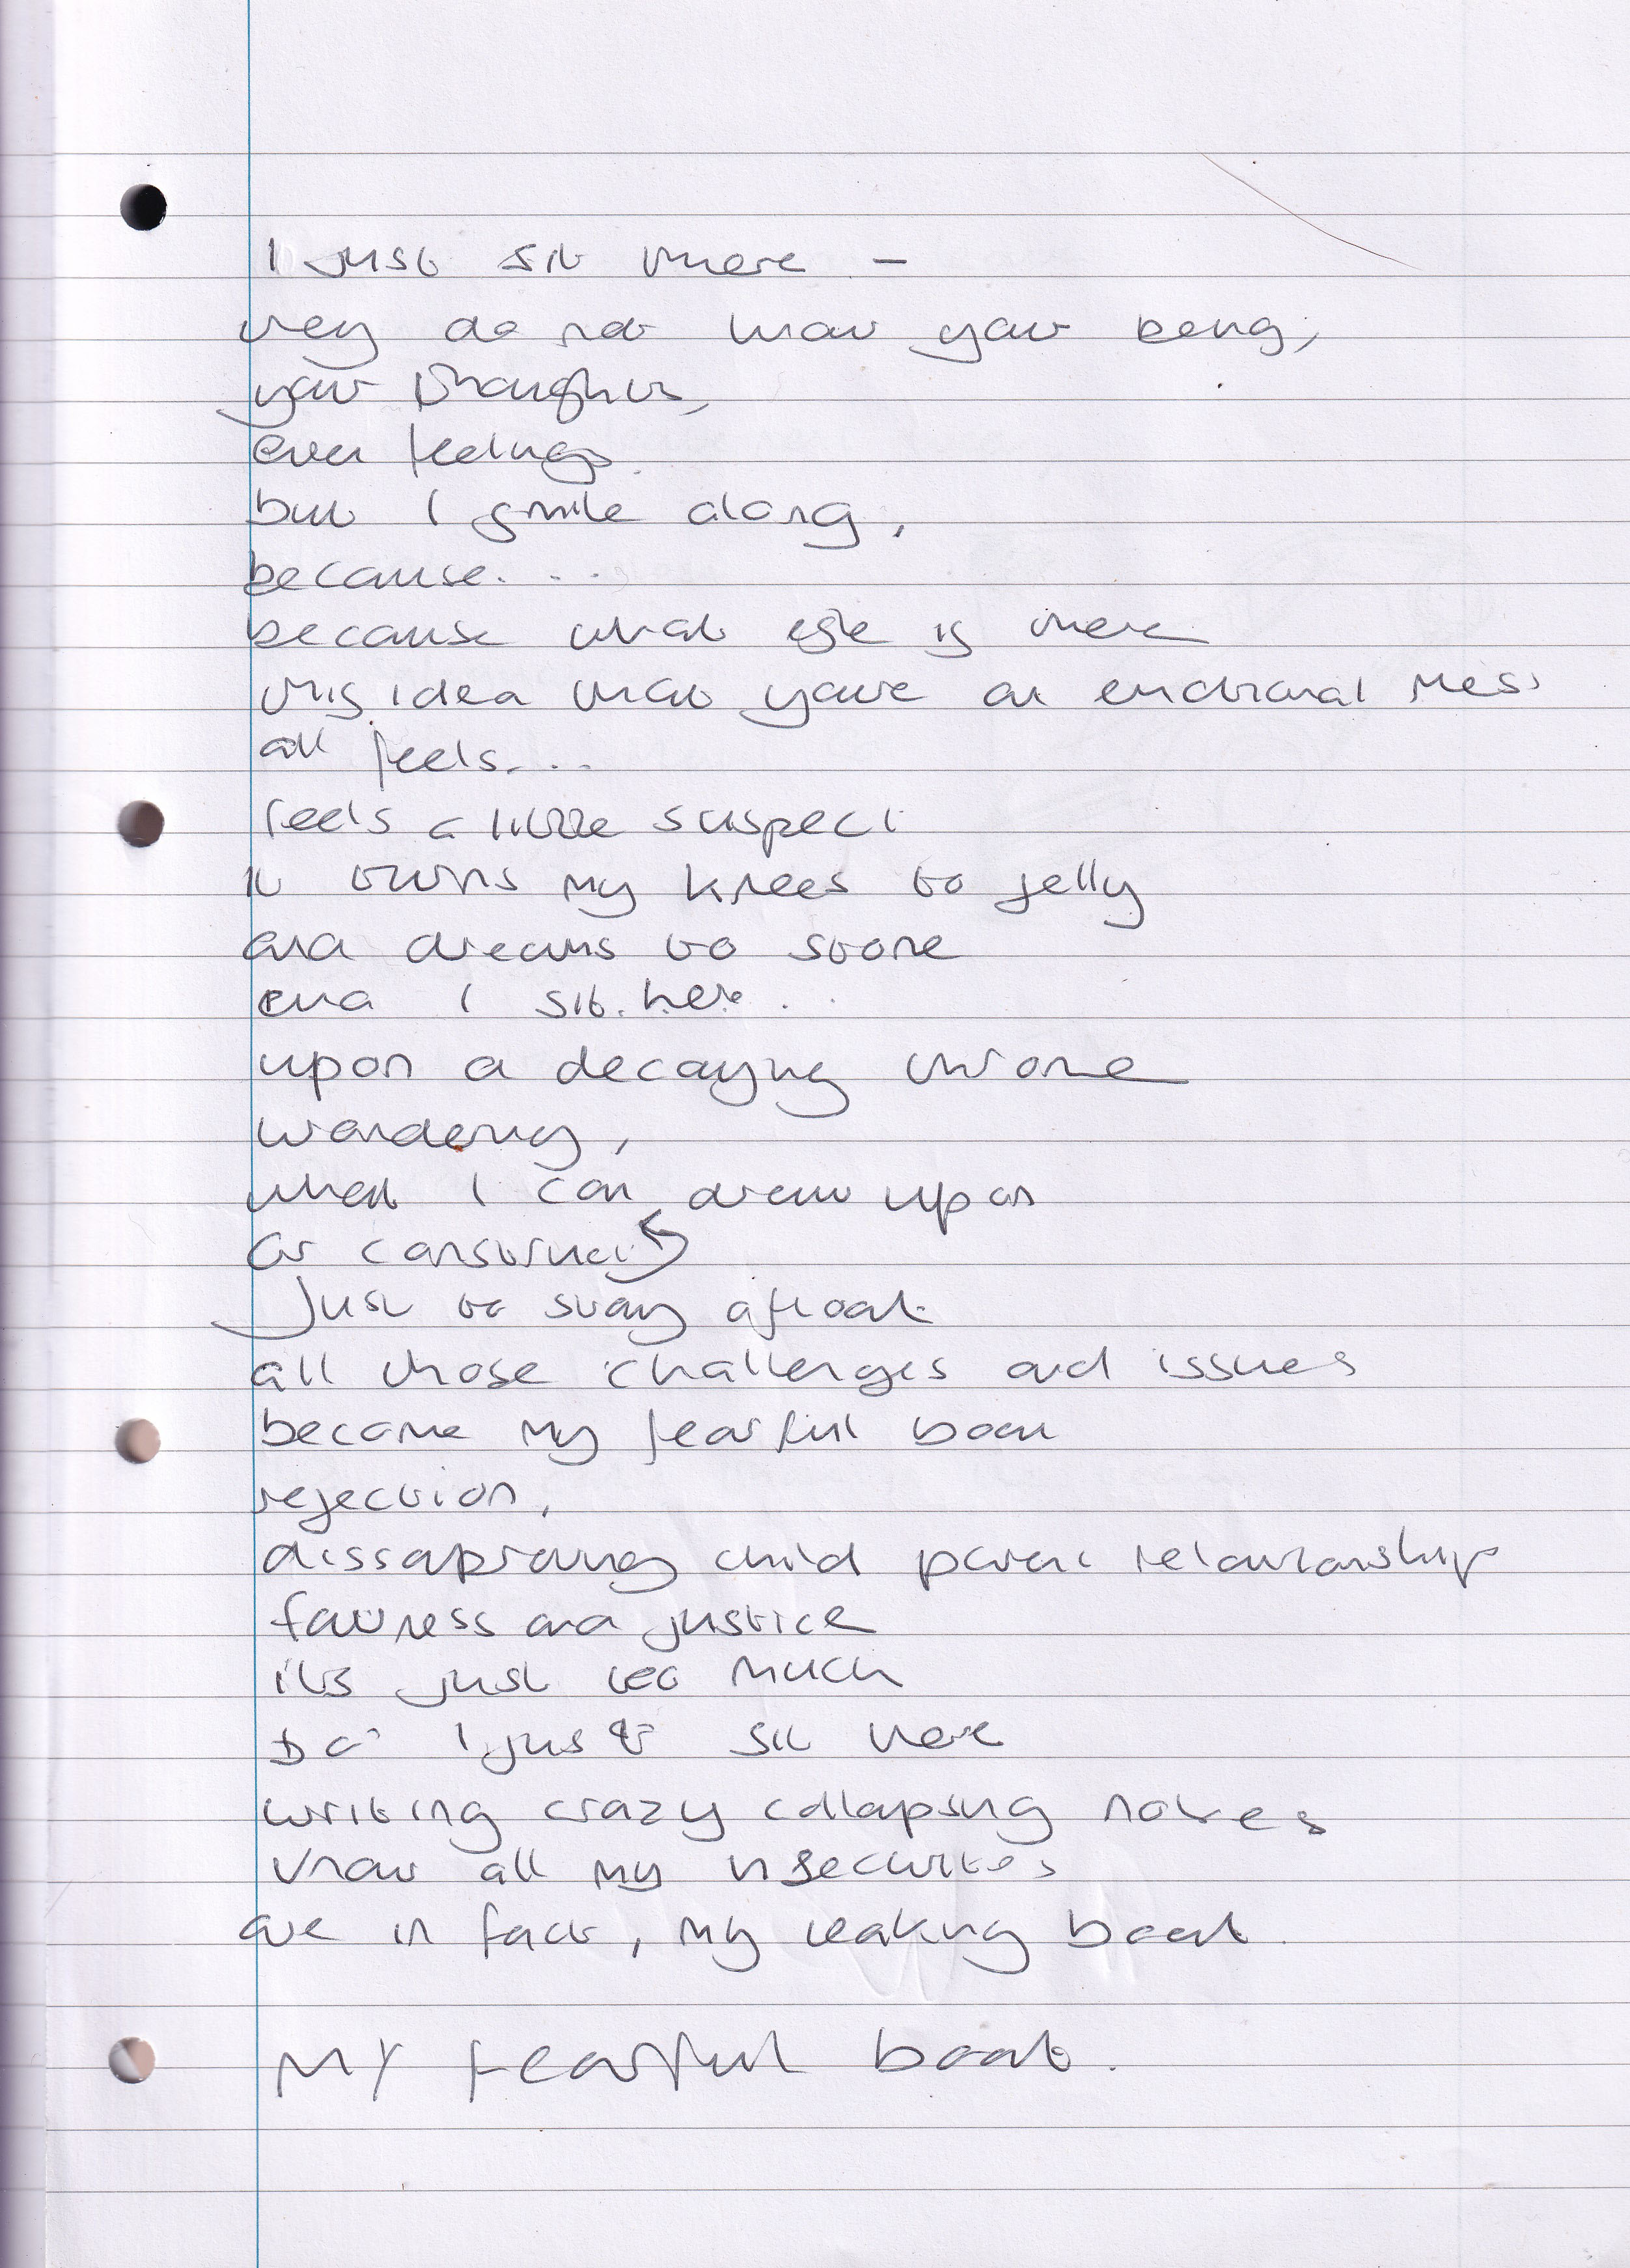 I just sit there -
they do not know your being,
your thoughts,
even feelings.
but I smile along,
because....
because what esle is there
this idea that youre an emotional mess
all feels....
feels a little suspect
it turns my knees to jelly
and dreams to stone
and I sit here..
upon a decaying throne
wondering,
what I can draw upon
or construct
Just to stay afloat
all those challenges and issues
become my fearful boat
rejection,
dissaproving child parent relationship
fairness and justice
its just too much
I just sit here
writing crazy collapsing notes
know all my insecurites
are in fact, my leaking boat.
MY fearful boat.